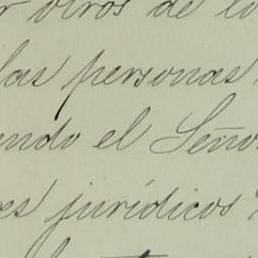 otros de lo
las personas
ndo el Seño
es jurídicos